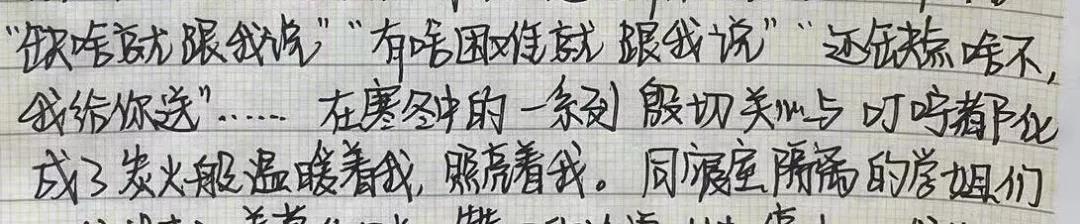 “缺啥就跟我说”“有啥困难就跟我说”“还缺点啥不,
我给你送”…… 在寒冬中的一系列殷切关心与叮咛都化
成了炭火般温暖着我,照亮着我。同寝室隔离的学姐们